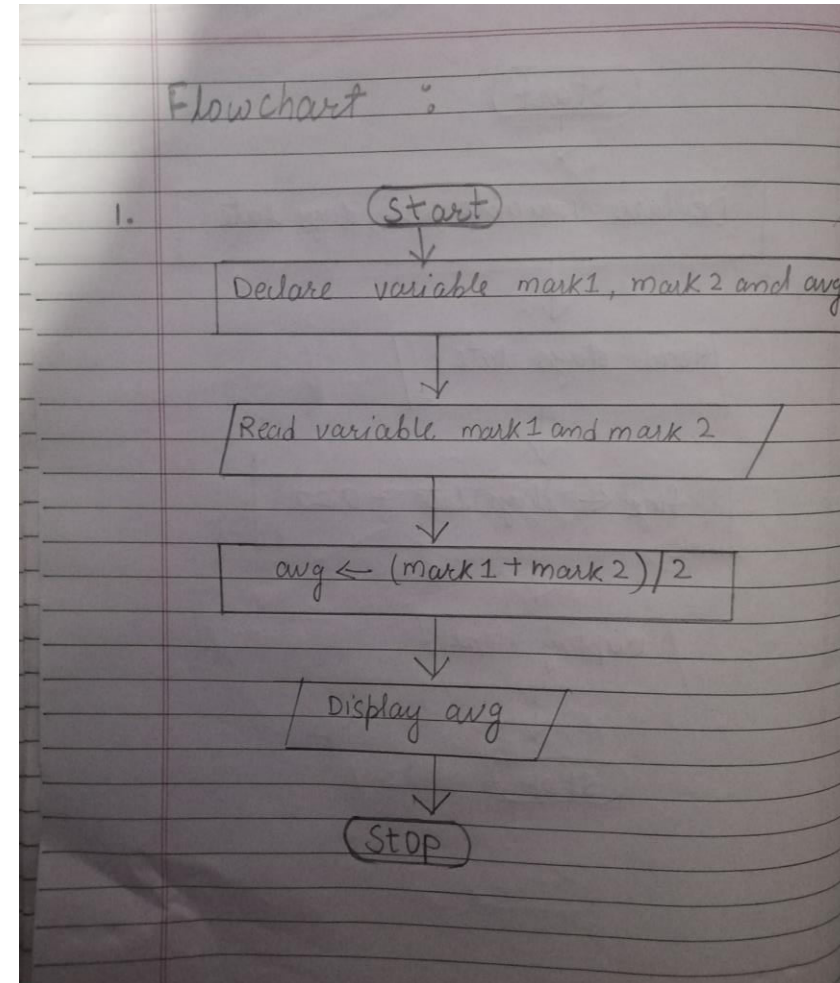 Flowchart :
1. Start
Declare variable mark1, mark 2 and avg
Read variable mark1 and mark 2
avg ← (mark1 + mark 2)/2
Display avg
Stop